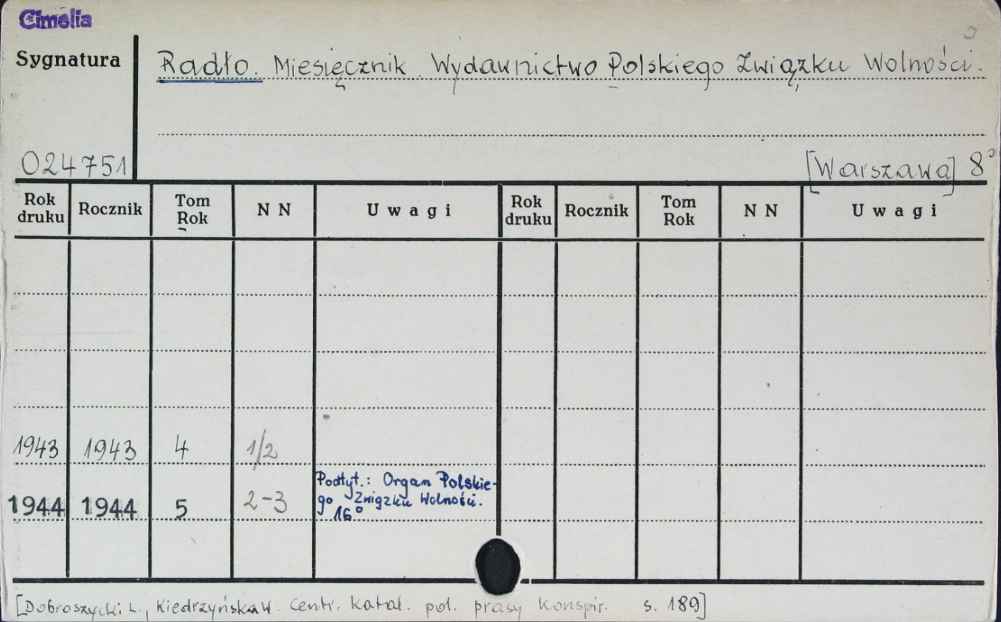 Cimelia
Sygnatura
Radło. Miesięcznik. Wydawnictwo Polskiego Związku Wolności.
024751
[Warszawa] 8°
Rok druku Rocznik Tom Rok N N Uwagi Rok druku Rocznik Tom Rok N N Uwagi
1943 1943 4 1/2
1944 1944 5 2-3 Podtyt.: Organ Polskie-
go Związku Wolności.
16°
[Dobroszycki L., Kiedrzyńska W. Centr. katal. pol. prasy konspir. s. 189]